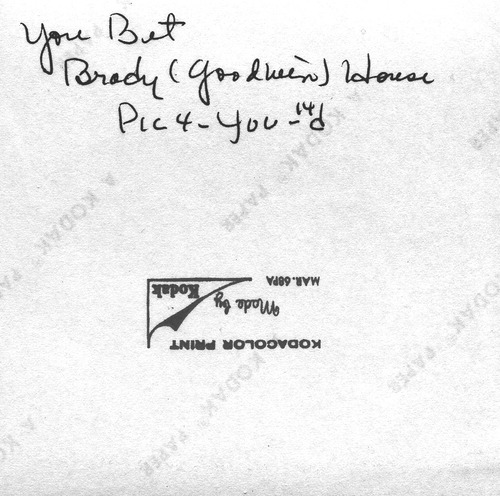 You Bet
Brady (Goodwin) House
Pic 4 - You - 14d
MAR. 68PA
Made by
Kodak
KODACOLOR PRINT
A KODAK PAPER
A KODAK PAPER
A KODAK PAPER
A KODAK PAPER